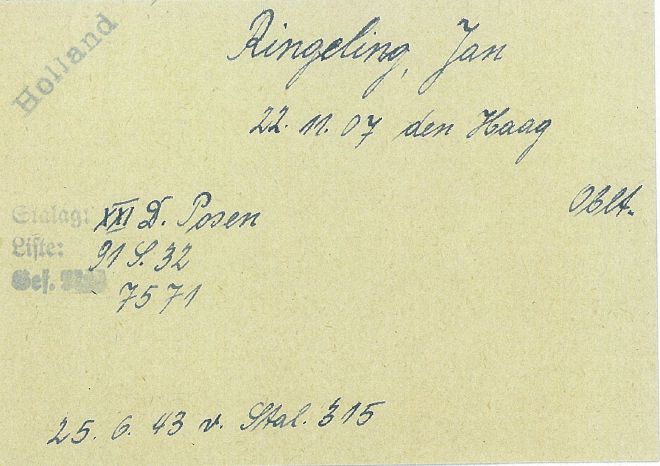 Holland
Ringeling, Jan
22. 11. 07 den Haag
Stalag: XXI D. Posen Oblt.
Liste: 91 S. 32
Gef. 7571
25. 6. 43 v. Stal. 315